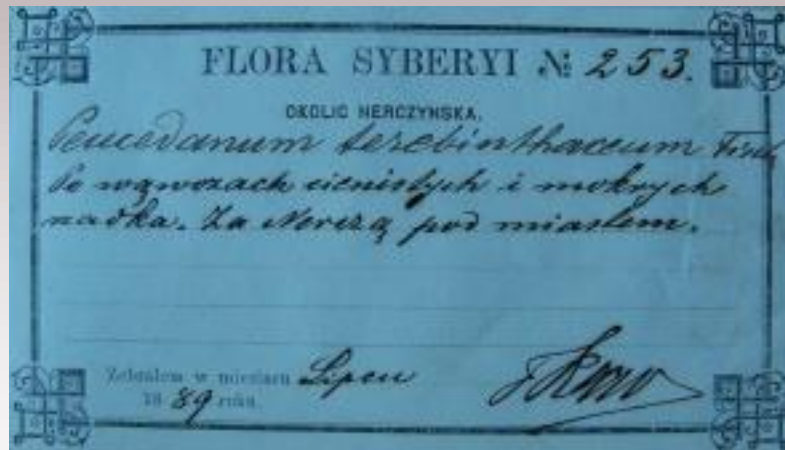 FLORA SYBERYI № 253.
OKOLIC NERCZYŃSKA.
Peucedanum terebinthaceum Fisch
Po wąwozach cienistych i mokrych
rzadka. Za Nerczą pod miastem.
Zebrałem w miesiącu Lipcu
18 89 roku.